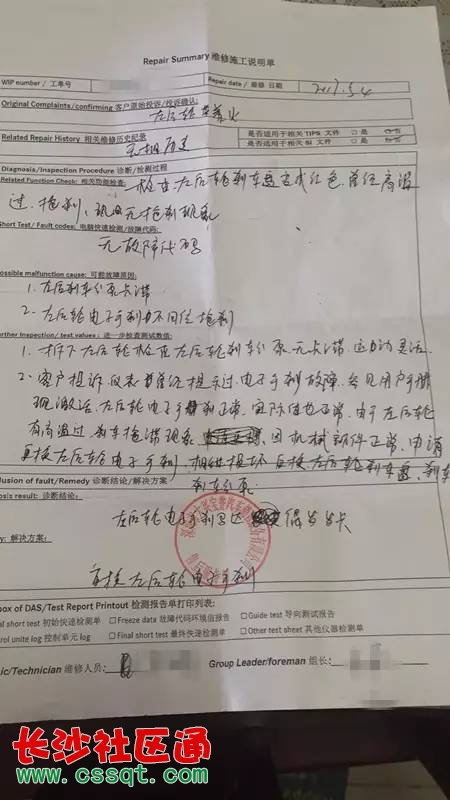 Repair Summary 维修施工说明单
WIP number / 工单号
Repair date / 维修 日期 2017.5.4
Original Complaints/confirming 客户原始投诉/投诉确认:
左后轮 着火
Related Repair History 相关维修历史纪录
无相历史
是否适用于相关 TIPS 文件 □ 是
是否适用于相关 SI 文件 □ 是
Diagnosis/Inspection Procedure 诊断/检测过程
Related Function Check: 相关功能检查: 检查左后轮刹车盘变成红色,曾经高温
过,拖刹,现在无拖刹现象
Short Test / Fault codes: 电脑快速检测/故障代码:
无故障代码
ossible malfunction cause: 可能故障原因:
1. 左后刹车分泵卡滞
2. 左后轮电子手刹力不回位拖刹
urther Inspection/ test values: 进一步检查测试数值:
1. 拆下左后轮检查左后轮刹车分泵无卡滞,运动灵活.
2. 客户投诉仪表曾经提示过电子手刹故障,
现激活左后轮电子手刹正常,实际值也正常,由于左后轮
有高温过,刹车拖滞现象 因机械部件正常,申请
更换左后轮电子手刹, 更换左后轮刹车盘,刹车
刹车分泵
lusion of fault/Remedy 诊断结论/解决方案
nosis result: 诊断结论:
左后轮电子手刹马达 偶发发卡
y: 解决方案:
更换左后轮电子手刹
box of DAS/Test Report Printout 检测报告单打印列表:
al short test 初始快速检测单 □ Freeze data 故障代码环境值报告 □ Guide test 导向测试报告
trol unite log 控制单元 log □ Final short test 最终快速检测单 □ Other test sheet 其他仪器检测单
ic/Technician 维修人员: Group Leader/foreman 组长:
长沙社区通
www.cssqt.com